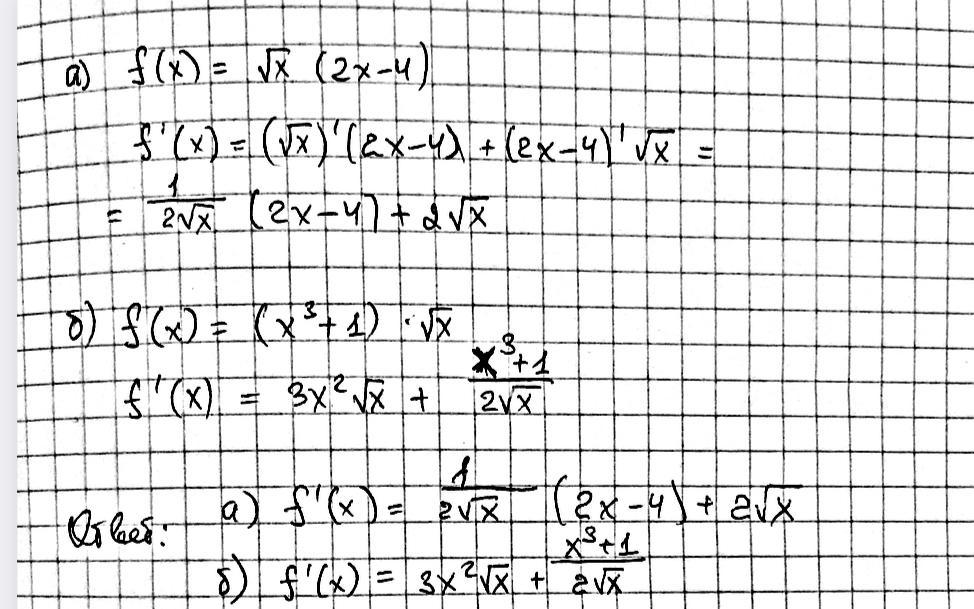 а) f(x) = √x (2x-4)
f'(x) = (√x)'(2x-4) + (2x-4)'√x =
= 1/(2√x) (2x-4) + 2√x
б) f(x) = (x³+1) · √x
f'(x) = 3x²√x + (x³+1)/(2√x)
Ответ: а) f'(x) = 1/(2√x) (2x-4) + 2√x
б) f'(x) = 3x²√x + (x³+1)/(2√x)